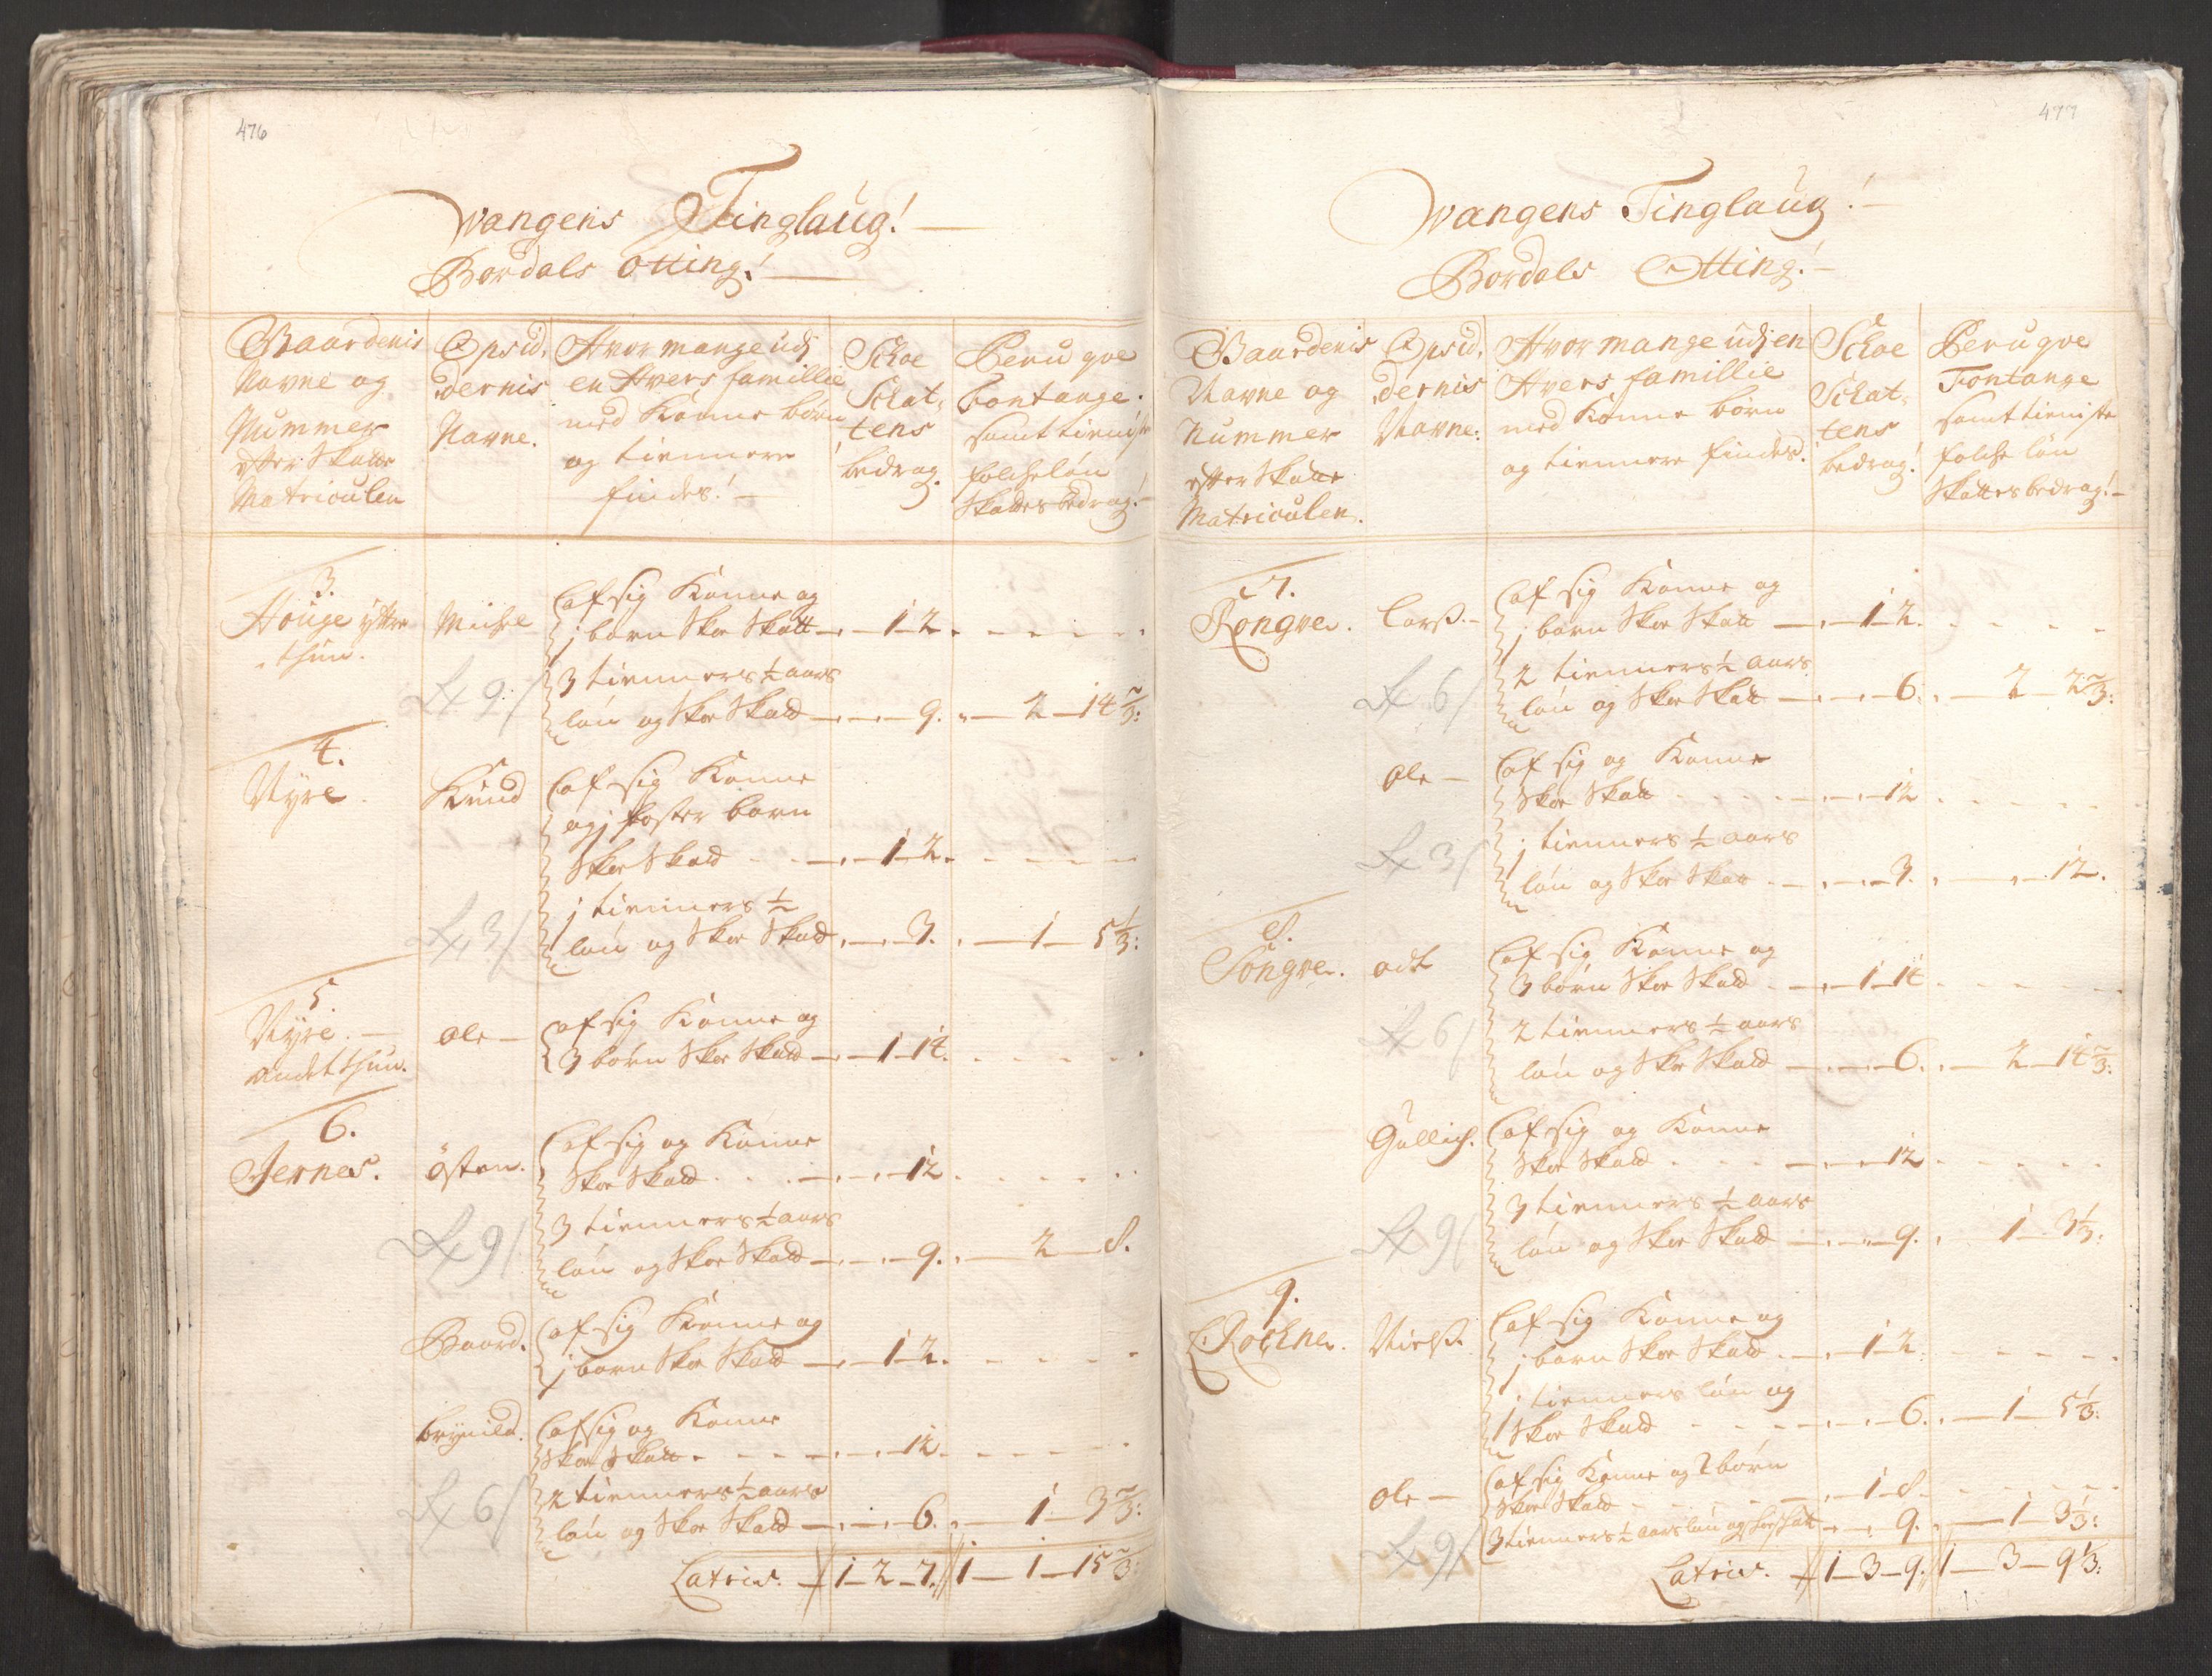 476
Wangens Tinglaug!
Bordals Otting!
Gaardenis
Navne og
Nummer
efter Skatte
Matriculen
Opsid,
dernis
Navne.
Hvor mange udj
en Hvers famillie
med Konne børn
og tiennere
findes!
Schoe
Schat,
tens
bedrag.
Peruqve
Fontange.
samt tieniste
folchs løn
Skattes bedrag!
3.
Houge yttre
thun.
Michel
af sig Konne og
j børn Skoe Skatt 1 2.
3 tienners ½ aars
løn og Skoe Skatt 9. 2 14 ⅔:
9
4.
Nyre.
Knud
af sig Konne
og j foster barn
Skoe Skatt 1 2.
j tienners ½
løn og Skoe Skatt 3. 1 5 ⅓:
3
5.
Nyre.
andet thun.
ole
af sig Konne og
3 børn Skoe Skatt 1 14.
6.
Jernes.
østen.
af sig og Konne
Skoe Skatt 12
3 tienners ½ aars
løn og Skoe Skatt 9. 2 8.
9
Baard.
af sig Konne og
j barn Skoe Skatt 1 2.
brynild.
af sig og Konne
Skoe Skatt 12
2 tienners ½ aars
løn og Skoe Skatt 6. 1 3 ⅔:
6
Latris. 1 2 7. 1 1 15 ⅔:
477
Wangens Tinglaug!
Bordals Otting!
Gaardenis
Navne og
Nummer
efter Skatte
Matriculen.
Opsid,
dernis
Navne:
Hvor mange udj en
Hvers famillie
med Konne børn
og tiennere findes.
Schoe
Schat,
tens
bedrag!
Peruqve
Fontange
samt tieniste
folchs løn
Skattes bedrag!
7.
Rongve.
Larß.
af sig Konne og
j barn Skoe Skatt 1 2.
2 tienners ½ aars
løn og Skoe Skatt 6. 2 2 ⅔:
6
ole
af sig og Konne
Skoe Skatt 12
j tienners ½ aars
løn og Skoe Skatt 3. 12.
3
8.
Songve.
odt
af sig Konne og
3 børn Skoe Skatt 1 14
2 tienners ½ aars
løn og Skoe Skatt 6. 2 14 ⅔:
6
Gullich.
af sig og Konne
Skoe Skatt 12
3 tienners ½ aars
løn og Skoe Skatt 9. 1 3 ⅓:
9
9.
Rochne.
Nielß.
af sig Konne og
j barn Skoe Skatt 1 2.
j tienners løn og
Skoe Skatt 6. 1 5 ⅓:
ole
af sig Konne og 2 børn
Skoe Skatt 1 8.
3 tienners ½ aars løn og Skoe Skatt 9. 1 3 ⅓:
9
Latris. 1 3 9. 1 3 9 ⅓: